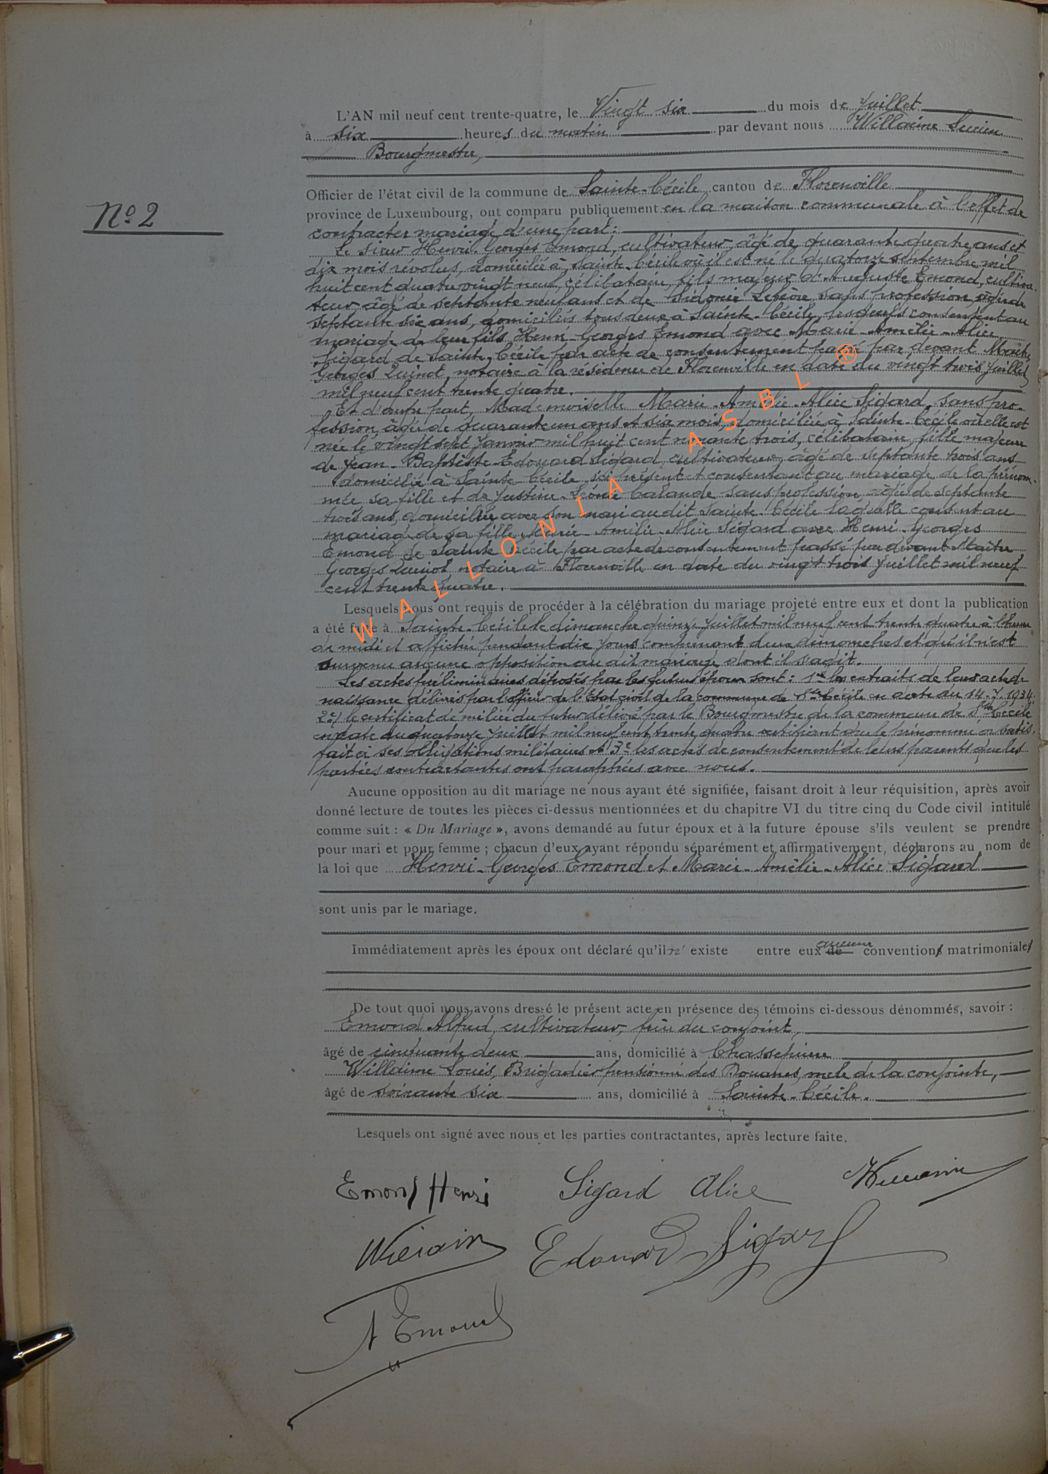 L'AN mil neuf cent trente-quatre, le Vingt six du mois de Juillet
à six heures du matin par devant nous Willaime Lucien
Bourgmestre,
Officier de l'état civil de la commune de Sainte-Cécile canton de Florenville
N° 2
province de Luxembourg, ont comparu publiquement en la maison communale à l'effet de
contracter mariage d'une part:
Le sieur Henri Georges Emond, cultivateur, âgé de quarante quatre ans et
dix mois révolus, domicilié à Sainte-Cécile où il est né le quatorze septembre mil
huit cent quatre vingt neuf, célibataire, fils majeur d'Auguste Emond, cultiva-
teur, âgé de septante neuf ans et de Sidonie Lefèvre, sans profession, âgée de
septante six ans, domiciliés tous deux à Sainte-Cécile, lesquels consentent au
mariage de leur fils Henri Georges Emond avec Marie-Amélie-Alice
Sigard de Sainte-Cécile par acte de consentement passé par devant Maître
Georges notaire à la résidence de Florenville en date du vingt trois juillet
mil neuf cent trente quatre.
Et d'autre part, Mademoiselle Marie-Amélie-Alice Sigard, sans pro-
fession, âgée de quarante un ans et six mois, domiciliée à Sainte-Cécile où elle est
née le vingt sept janvier mil huit cent nonante trois, célibataire, fille majeure
de Jean-Baptiste-Edouard Sigard, cultivateur, âgé de septante trois ans
domicilié à Sainte Cécile ici présent et consentant au mariage de la prénom-
mée sa fille et de Justine Léonie Lalande sans profession, âgée de septante
trois ans, domiciliée avec son mari au dit Sainte-Cécile laquelle consent au
mariage de sa fille Marie-Amélie-Alice Sigard avec Henri-Georges
Emond de Sainte Cécile par acte de consentement passé par devant Maître
Georges notaire à Florenville en date du vingt trois juillet mil neuf
cent trente quatre.
Lesquels nous ont requis de procéder à la célébration du mariage projeté entre eux et dont la publication
a été faite à Sainte-Cécile le dimanche quinze juillet mil neuf cent trente quatre à l'heure
de midi et affichée pendant dix jours comprenant deux dimanches et qu'il n'est
survenu aucune opposition au dit mariage dont il s'agit.
Les actes préliminaires déposés par les futurs époux sont: 1° les extraits de leurs actes de
naissance délivrés par l'officier de l'Etat civil de la commune de Ste Cécile en date du 14.7.1934
2°) le certificat de milice du futur délivré par le Bourgmestre de la commune de Ste Cécile
en date du quatorze juillet mil neuf cent trente quatre certifiant que le prénommé a satis-
fait à ses obligations militaires et 3° les actes de consentement de leurs parents que les
parties contractantes ont paraphées avec nous.
Aucune opposition au dit mariage ne nous ayant été signifiée, faisant droit à leur réquisition, après avoir
donné lecture de toutes les pièces ci-dessus mentionnées et du chapitre VI du titre cinq du Code civil intitulé
comme suit : « Du Mariage », avons demandé au futur époux et à la future épouse s'ils veulent se prendre
pour mari et pour femme ; chacun d'eux ayant répondu séparément et affirmativement, déclarons au nom de
la loi que Henri-Georges Emond et Marie-Amélie-Alice Sigard
sont unis par le mariage.
Immédiatement après les époux ont déclaré qu'il n'existe entre eux de aucune conventions matrimoniales
De tout quoi nous avons dressé le présent acte en présence des témoins ci-dessous dénommés, savoir :
Emond Alfred, cultivateur, frère du conjoint,
âgé de cinquante deux ans, domicilié à Chassepierre
Willaime Louis, Brigadier pensionné des Douanes, oncle de la conjointe,
âgé de soixante six ans, domicilié à Sainte-Cécile.
Lesquels ont signé avec nous et les parties contractantes, après lecture faite.
Emond Henri Sigard Alice Willaime
Willaime Edouard Sigard
A Emond
WALLONIA ASBL ®